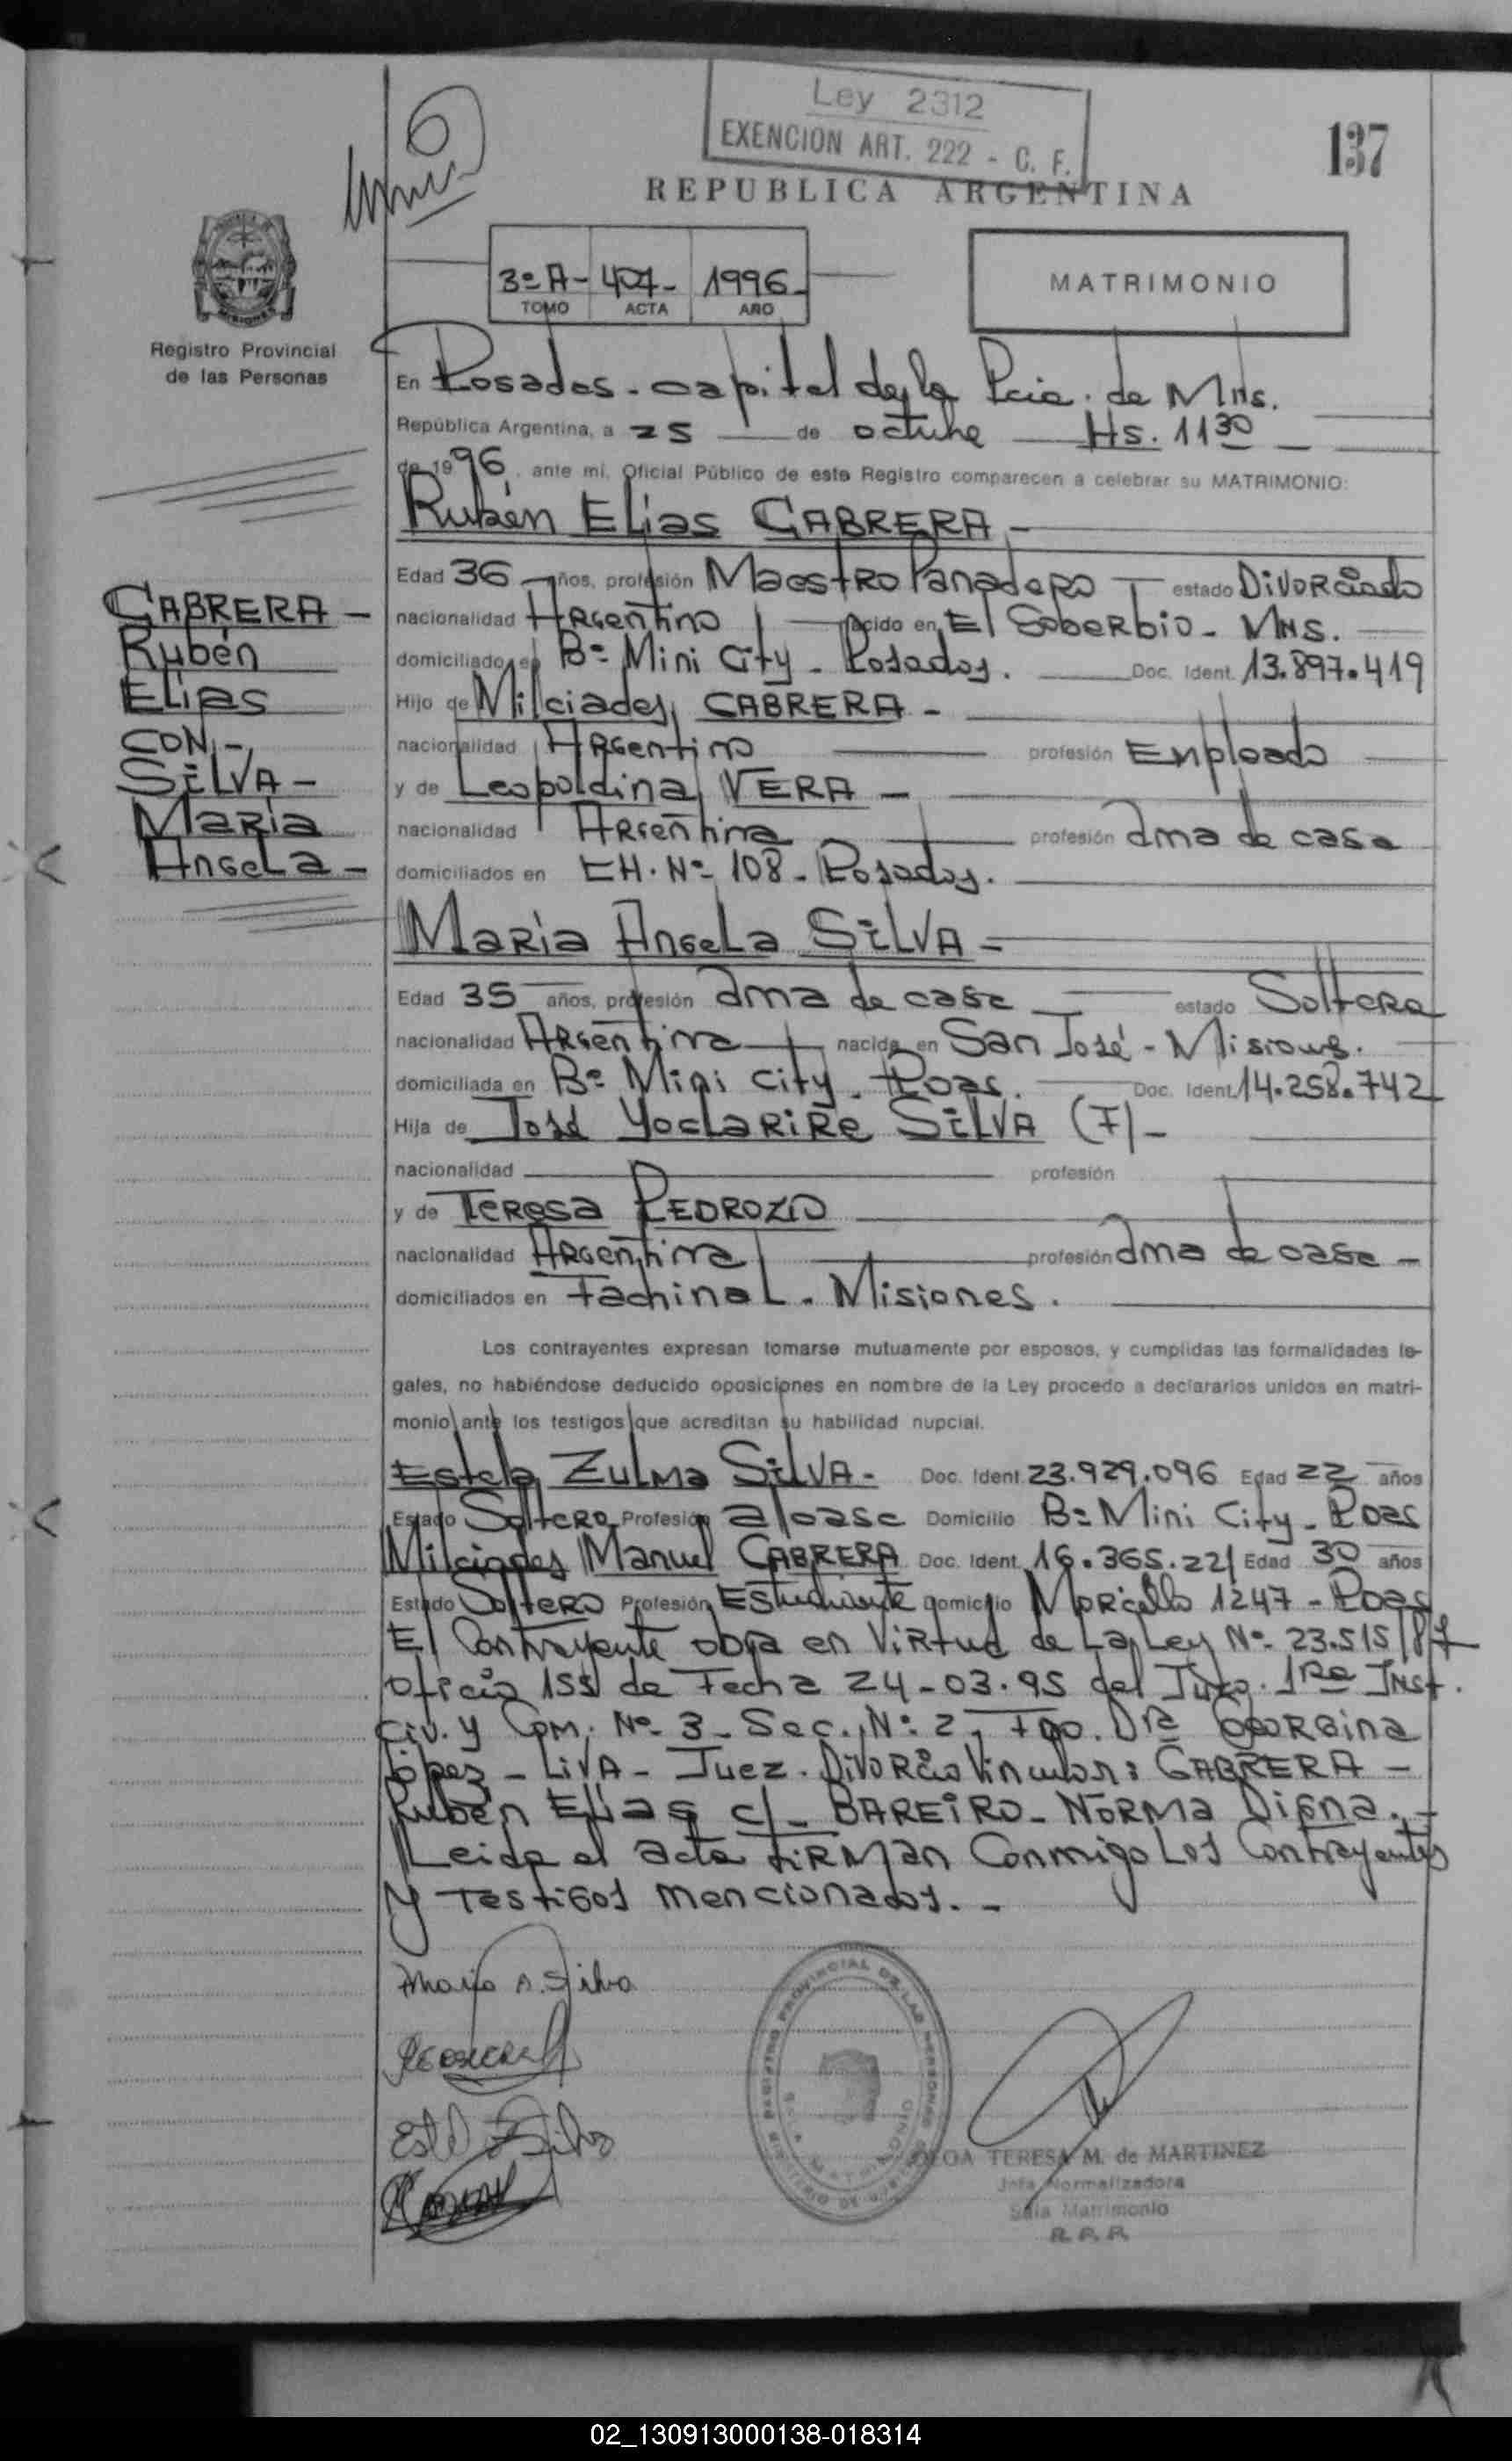 Ley 2312
EXENCION ART. 222 - C. F.
137
REPUBLICA ARGENTINA
3º A - 407 - 1996 -
TOMO ACTA AÑO
MATRIMONIO
Registro Provincial
de las Personas
En Posadas - capital de la Pcia. de Mns.
República Argentina, a 25 de octubre Hs. 11 30
de 1996, ante mi, Oficial Público de este Registro comparecen a celebrar su MATRIMONIO:
Rubén Elias CABRERA -
Edad 36 años, profesión Maestro Panadero estado Divorciado
nacionalidad Argentino nacido en El Soberbio - Mns.
domiciliado en Bº Mini City - Posadas. Doc. Ident. 13.897.419
Hijo de Milciades CABRERA -
nacionalidad Argentino profesión Empleado
y de Leopoldina VERA -
nacionalidad Argentina profesión ama de casa
domiciliados en CH. Nº 108 - Posadas.
CABRERA -
Rubén
Elias
CON -
SILVA -
María
Angela -
María Angela SILVA -
Edad 35 años, profesión ama de casa estado Soltera
nacionalidad Argentina nacida en San José - Misiones.
domiciliada en Bº Mini City - Poas. Doc. Ident. 14.258.742
Hija de José Yoclarire SILVA (F) -
nacionalidad profesión
y de Teresa PEDROZO
nacionalidad Argentina profesión ama de casa -
domiciliados en Fachinal - Misiones.
Los contrayentes expresan tomarse mutuamente por esposos, y cumplidas las formalidades le-
gales, no habiéndose deducido oposiciones en nombre de la Ley procedo a declararlos unidos en matri-
monio ante los testigos que acreditan su habilidad nupcial.
Estela Zulma SILVA - Doc. Ident. 23.929.096 Edad 22 años
Estado Soltera Profesión a/casa Domicilio Bº Mini City - Poas
Milciades Manuel CABRERA Doc. Ident. 16.365.221 Edad 30 años
Estado Soltero Profesión Estudiante Domicilio 1247 - Poas
El Contrayente obra en Virtud de La Ley Nº 23.515/87
Oficio 155 de Fecha 24-03-95 del Juzg. 1ra Inst.
Civ. y Com. Nº 3 - Sec. Nº 2, Fdo. Dra Georgina
López - LIVA - Juez. Divorcio Vincular: CABRERA -
Rubén Elias c/ BAREIRO - NORMA Digna. -
Leida el acta FIRMAN Conmigo Los Contrayentes
y Testigos mencionados. -
Maria A. Silva
REGISTRO PROVINCIAL DE LAS PERSONAS
SALA MATRIMONIO
OLGA TERESA M. de MARTINEZ
Jefa Normalizadora
Sala Matrimonio
R. P. P.
02_130913000138-018314